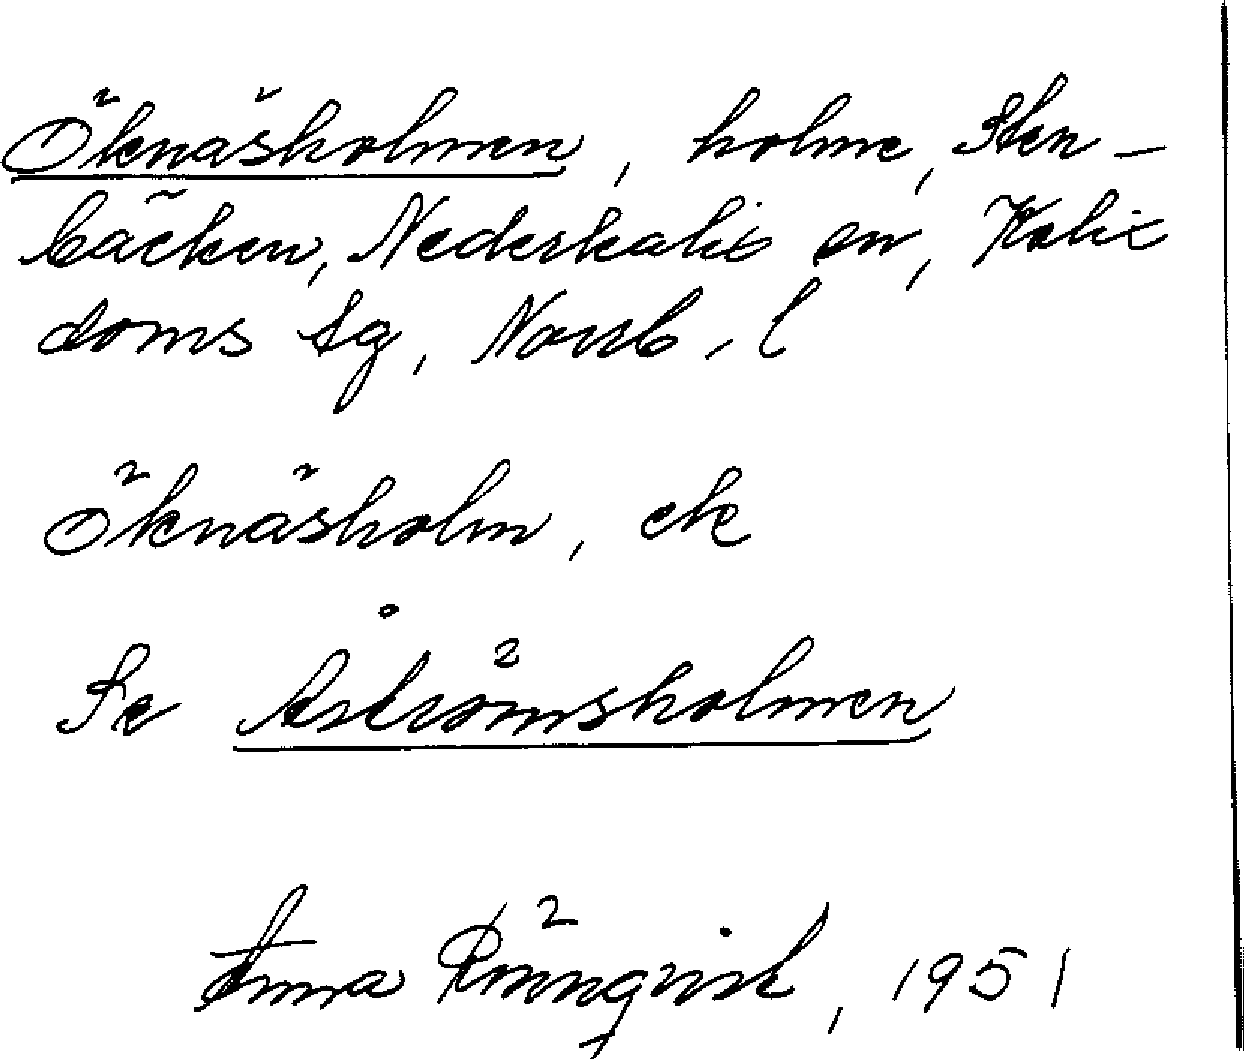 Öknäsholmen, holme, Sten-
bäcken, Nederkalix sn, Kalix
doms tg, Norrb. l
Öknäsholm, ek
Se Åströmsholmen
Anna Rönnqvist, 1951